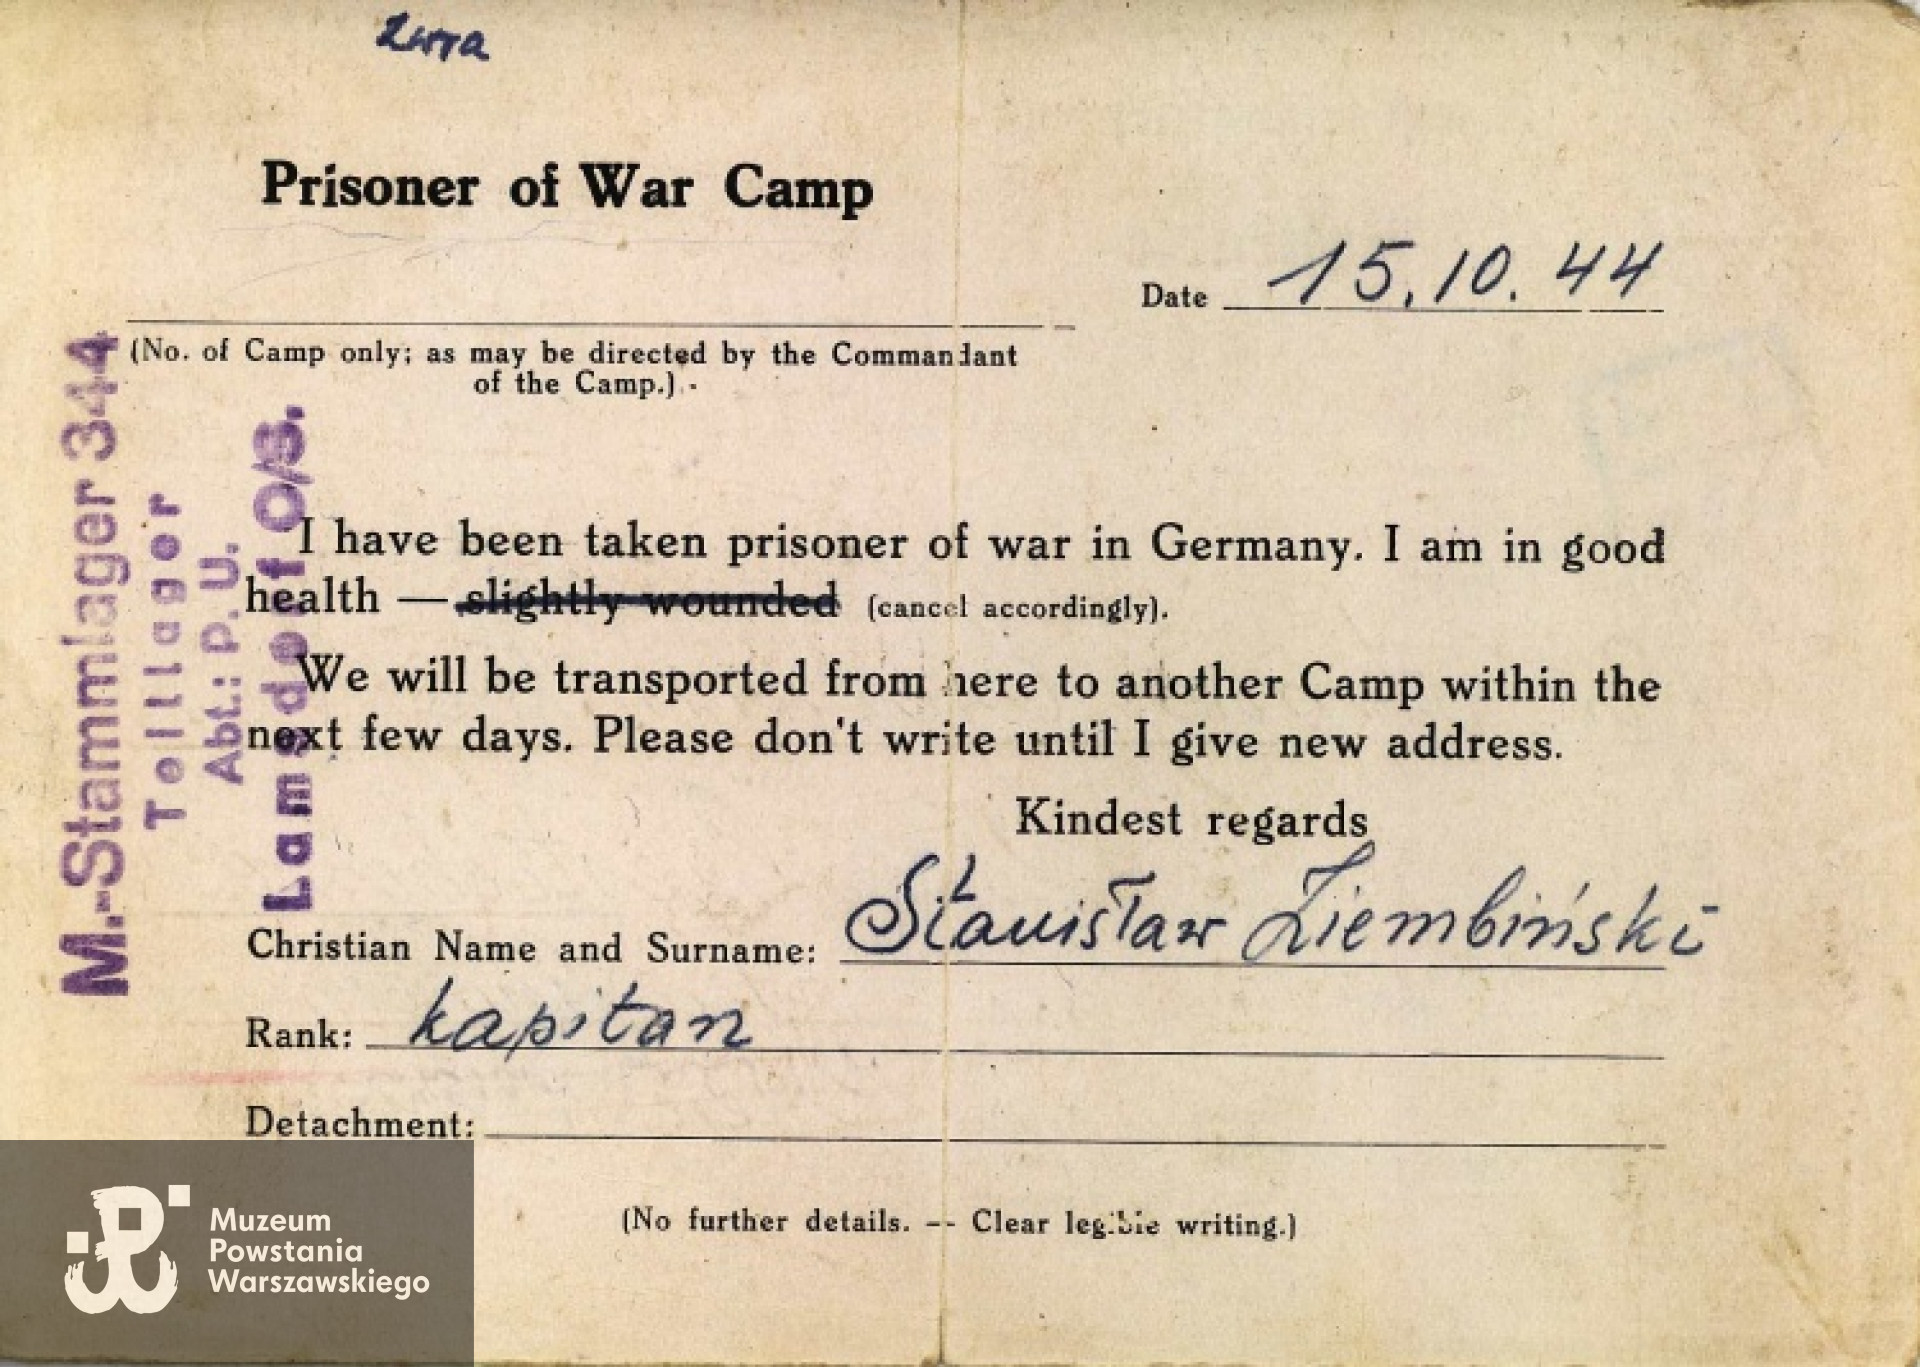 Prisoner of War Camp
Date 15.10.44
(No. of Camp only; as may be directed by the Commandant
of the Camp.)
M.-Stammlager 344
Teillager
Abt.: P. U.
Lamsdorf O/S.
I have been taken prisoner of war in Germany. I am in good
health — slightly wounded (cancel accordingly).
We will be transported from here to another Camp within the
next few days. Please don't write until I give new address.
Kindest regards
Christian Name and Surname: Stanisław Ziembiński
Rank: kapitan
Detachment:
(No further details. -- Clear legible writing.)
Muzeum
Powstania
Warszawskiego